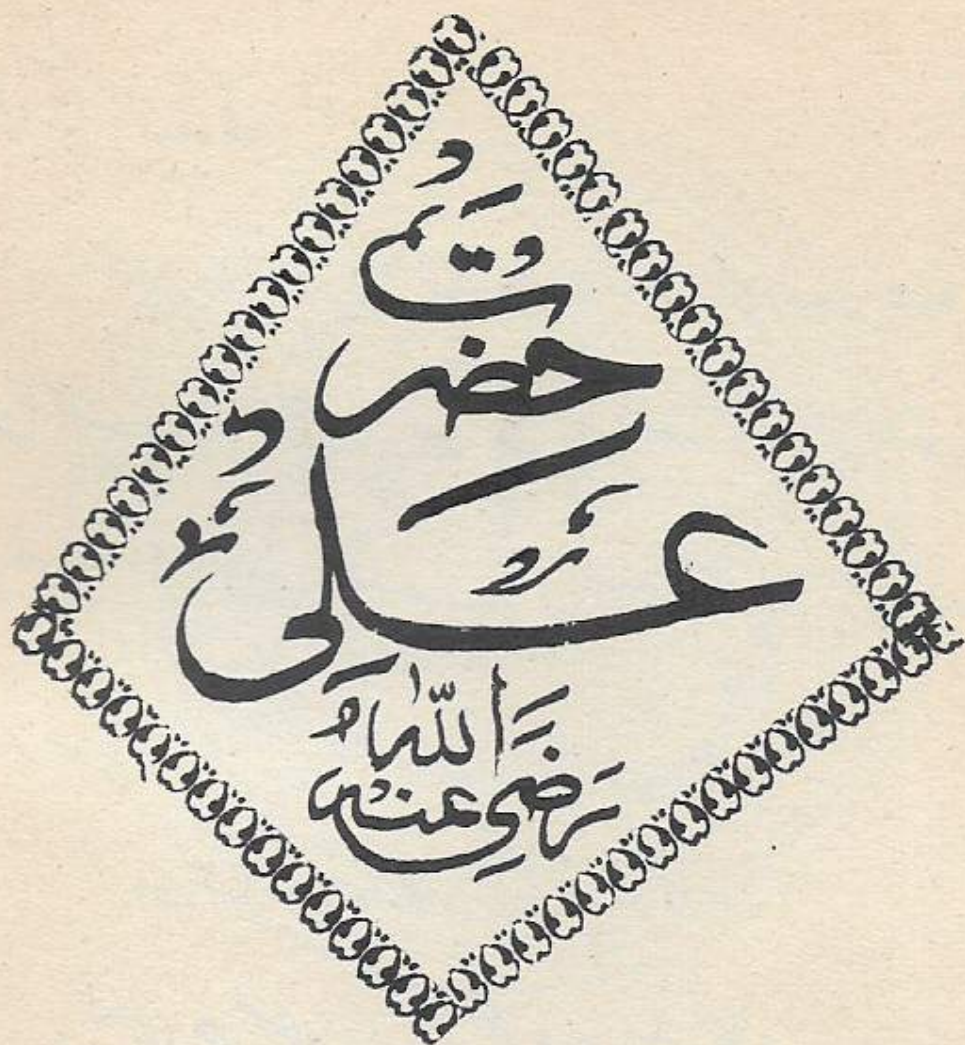 حضرت
علی
رضی اللہ عنہ